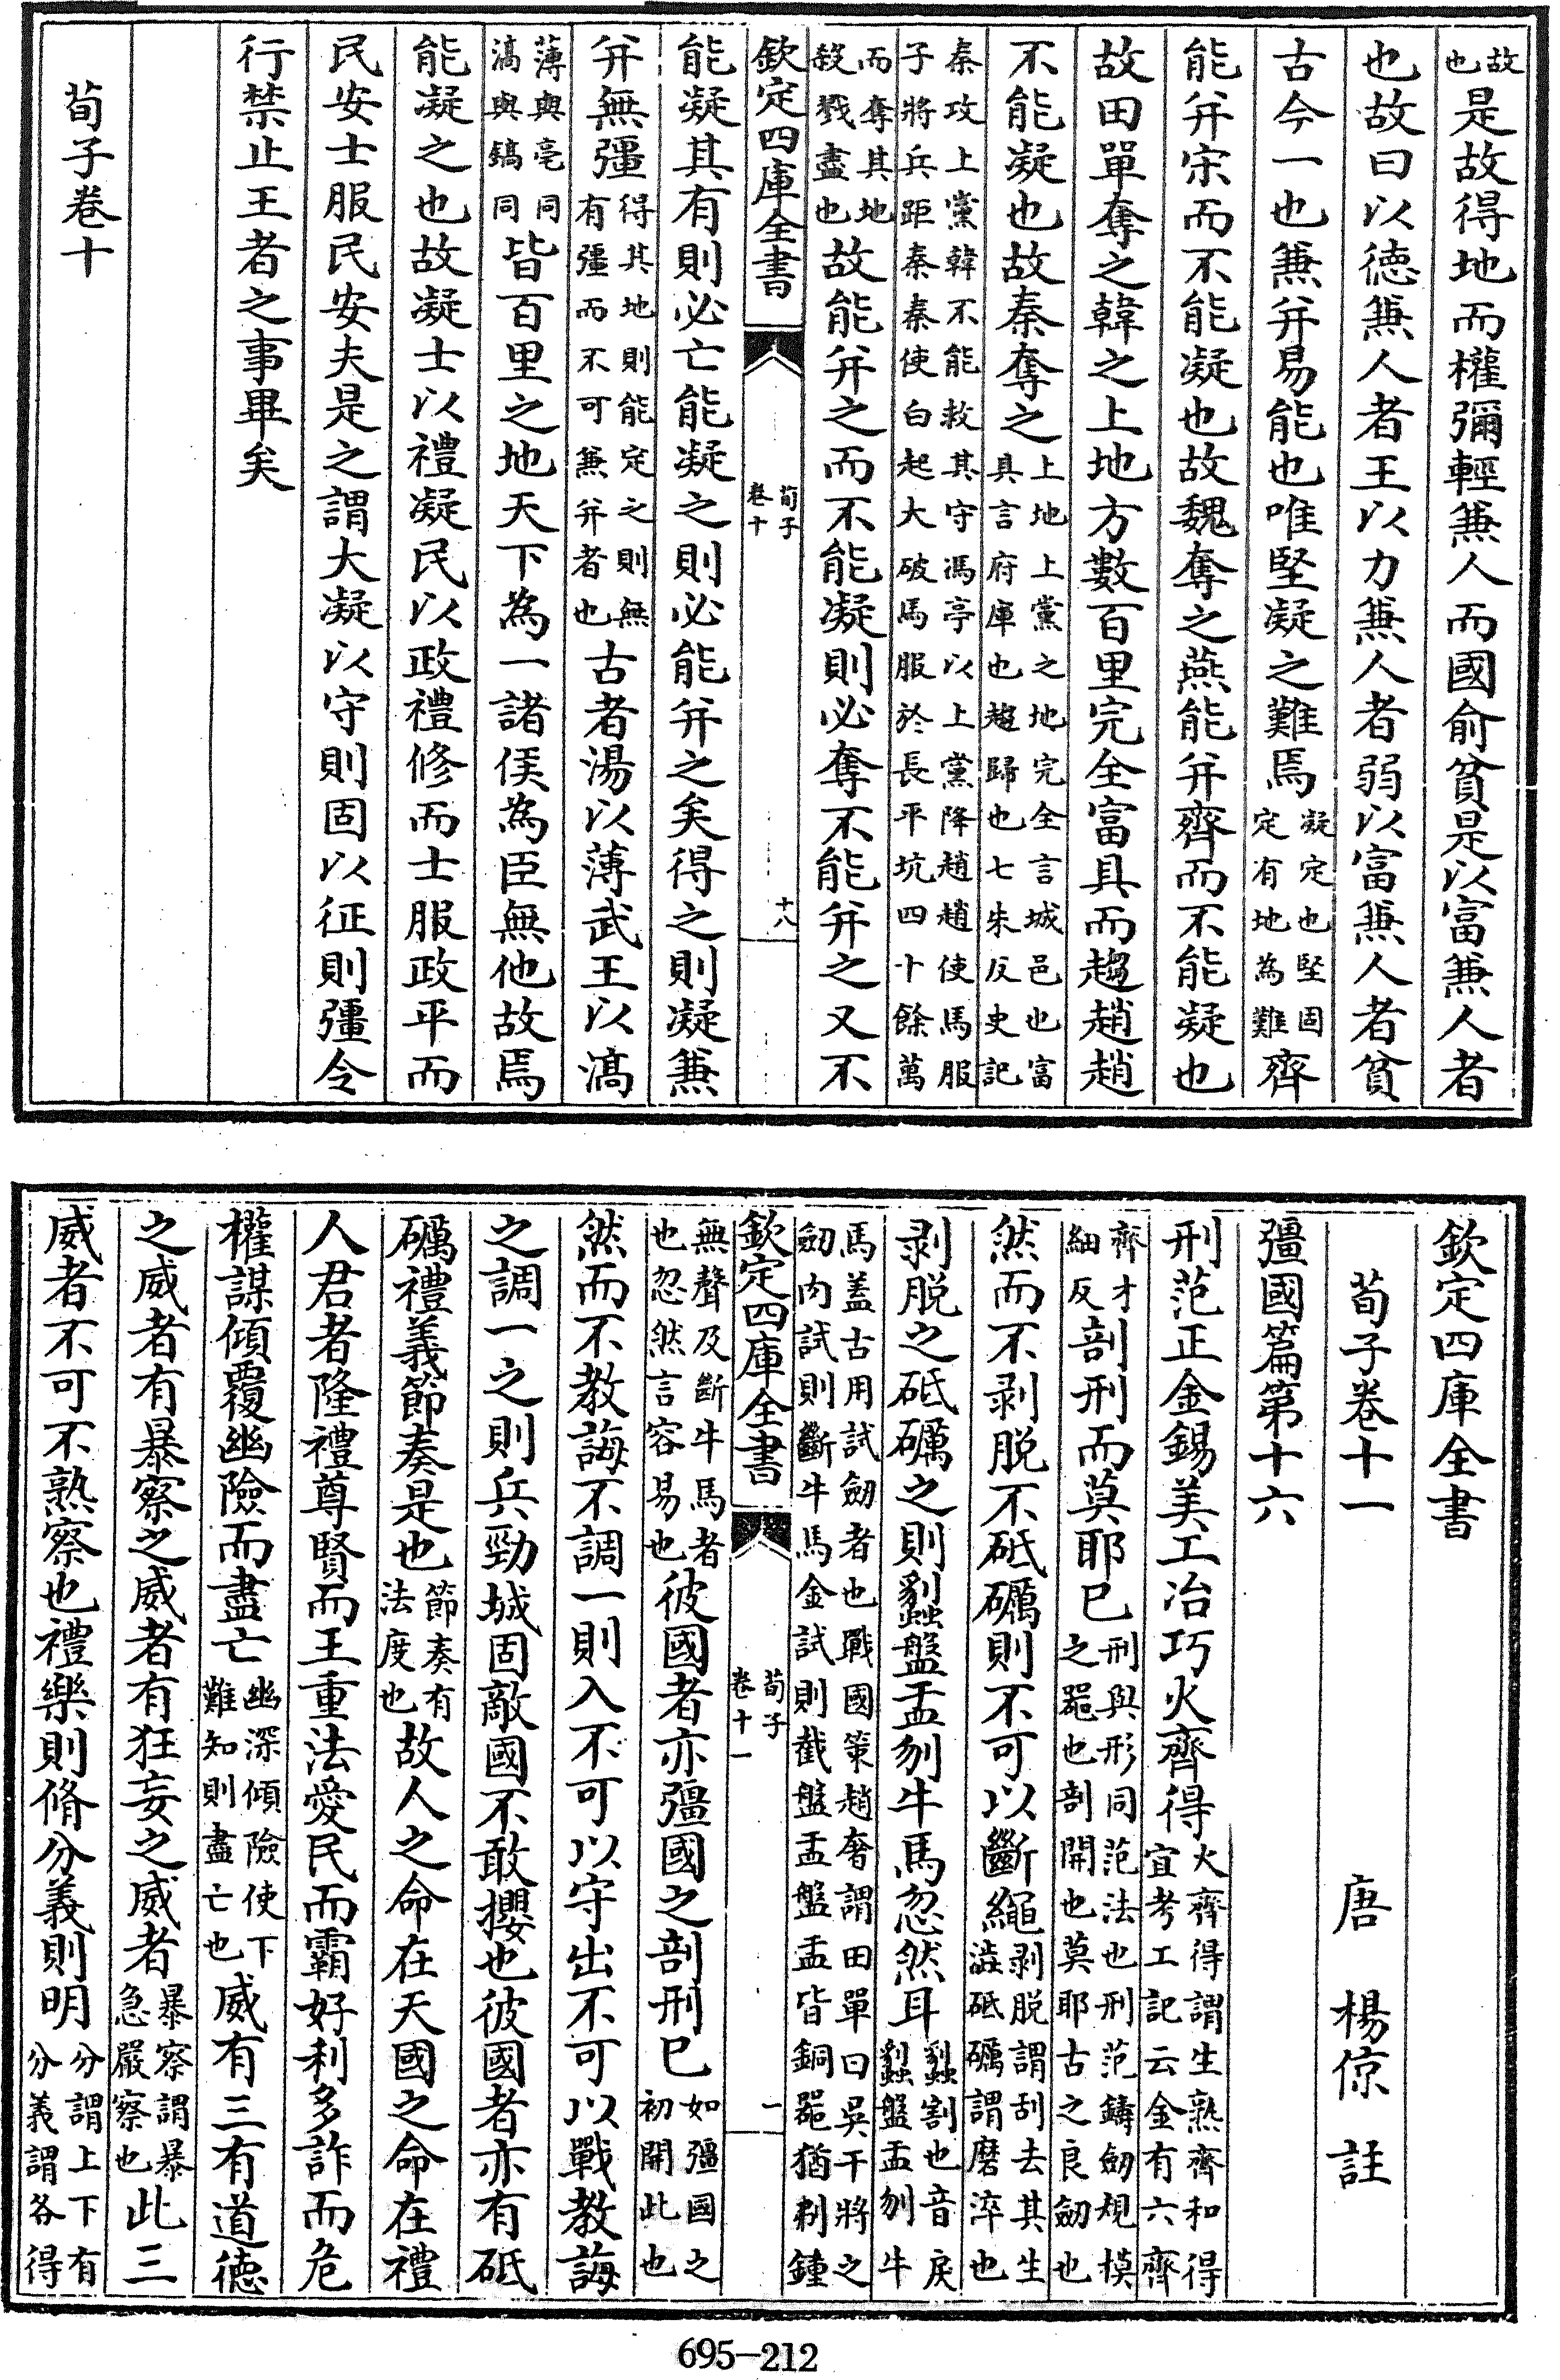 故也是故得地而權彌輕兼人而國俞貧是以富兼人者
也故曰以德兼人者王以力兼人者弱以富兼人者貧
古今一也兼并易能也唯堅凝之難焉凝定也堅固定有地為難齊
能并宋而不能凝也故魏奪之燕能并齊而不能凝也
故田單奪之韓之上地方數百里完全富具而趨趙趙
不能凝也故秦奪之上地上黨之地完全言城邑也富具言府庫也趨歸也七朱反史記
秦攻上黨韓不能救其守馮亭以上黨降趙趙使馬服子將兵距秦秦使白起大破馬服於長平坑四十餘萬
而奪其地殺戮盡也故能并之而不能凝則必奪不能并之又不
欽定四庫全書
荀子
卷十
十八
能凝其有則必亡能凝之則必能并之矣得之則凝兼
并無彊得其地則能定之則無有彊而不可兼并者也古者湯以薄武王以滈
薄與亳同滈與鎬同皆百里之地天下為一諸侯為臣無他故焉
能凝之也故凝士以禮凝民以政禮修而士服政平而
民安士服民安夫是之謂大凝以守則固以征則彊令
行禁止王者之事畢矣
荀子卷十
欽定四庫全書
荀子卷十一
唐 楊倞 註
彊國篇第十六
刑范正金錫美工冶巧火齊得火齊得謂生熟齊和得宜考工記云金有六齊
齊才細反剖刑而莫耶已刑與形同范法也刑范鑄劒規模之器也剖開也莫耶古之良劒也
然而不剥脱不砥礪則不可以斷繩剥脱謂刮去其生澁砥礪謂磨淬也
剥脱之砥礪之則劙盤盂刎牛馬忽然耳劙割也音戾劙盤盂刎牛
馬蓋古用試劒者也戰國策趙奢謂田單曰吳干將之劒肉試則斷牛馬金試則截盤盂盤盂皆銅器猶刺鍾
欽定四庫全書
荀子
卷十一
一
無聲及斷牛馬者也忽然言容易也彼國者亦彊國之剖刑已如彊國之初開此也
然而不教誨不調一則入不可以守出不可以戰教誨
之調一之則兵勁城固敵國不敢攖也彼國者亦有砥
礪禮義節奏是也節奏有法度也故人之命在天國之命在禮
人君者隆禮尊賢而王重法愛民而霸好利多詐而危
權謀傾覆幽險而盡亡幽深傾險使下難知則盡亡也威有三有道德
之威者有暴察之威者有狂妄之威者暴察謂暴急嚴察也此三
威者不可不熟察也禮樂則脩分義則明分謂上下有分義謂各得
695-212